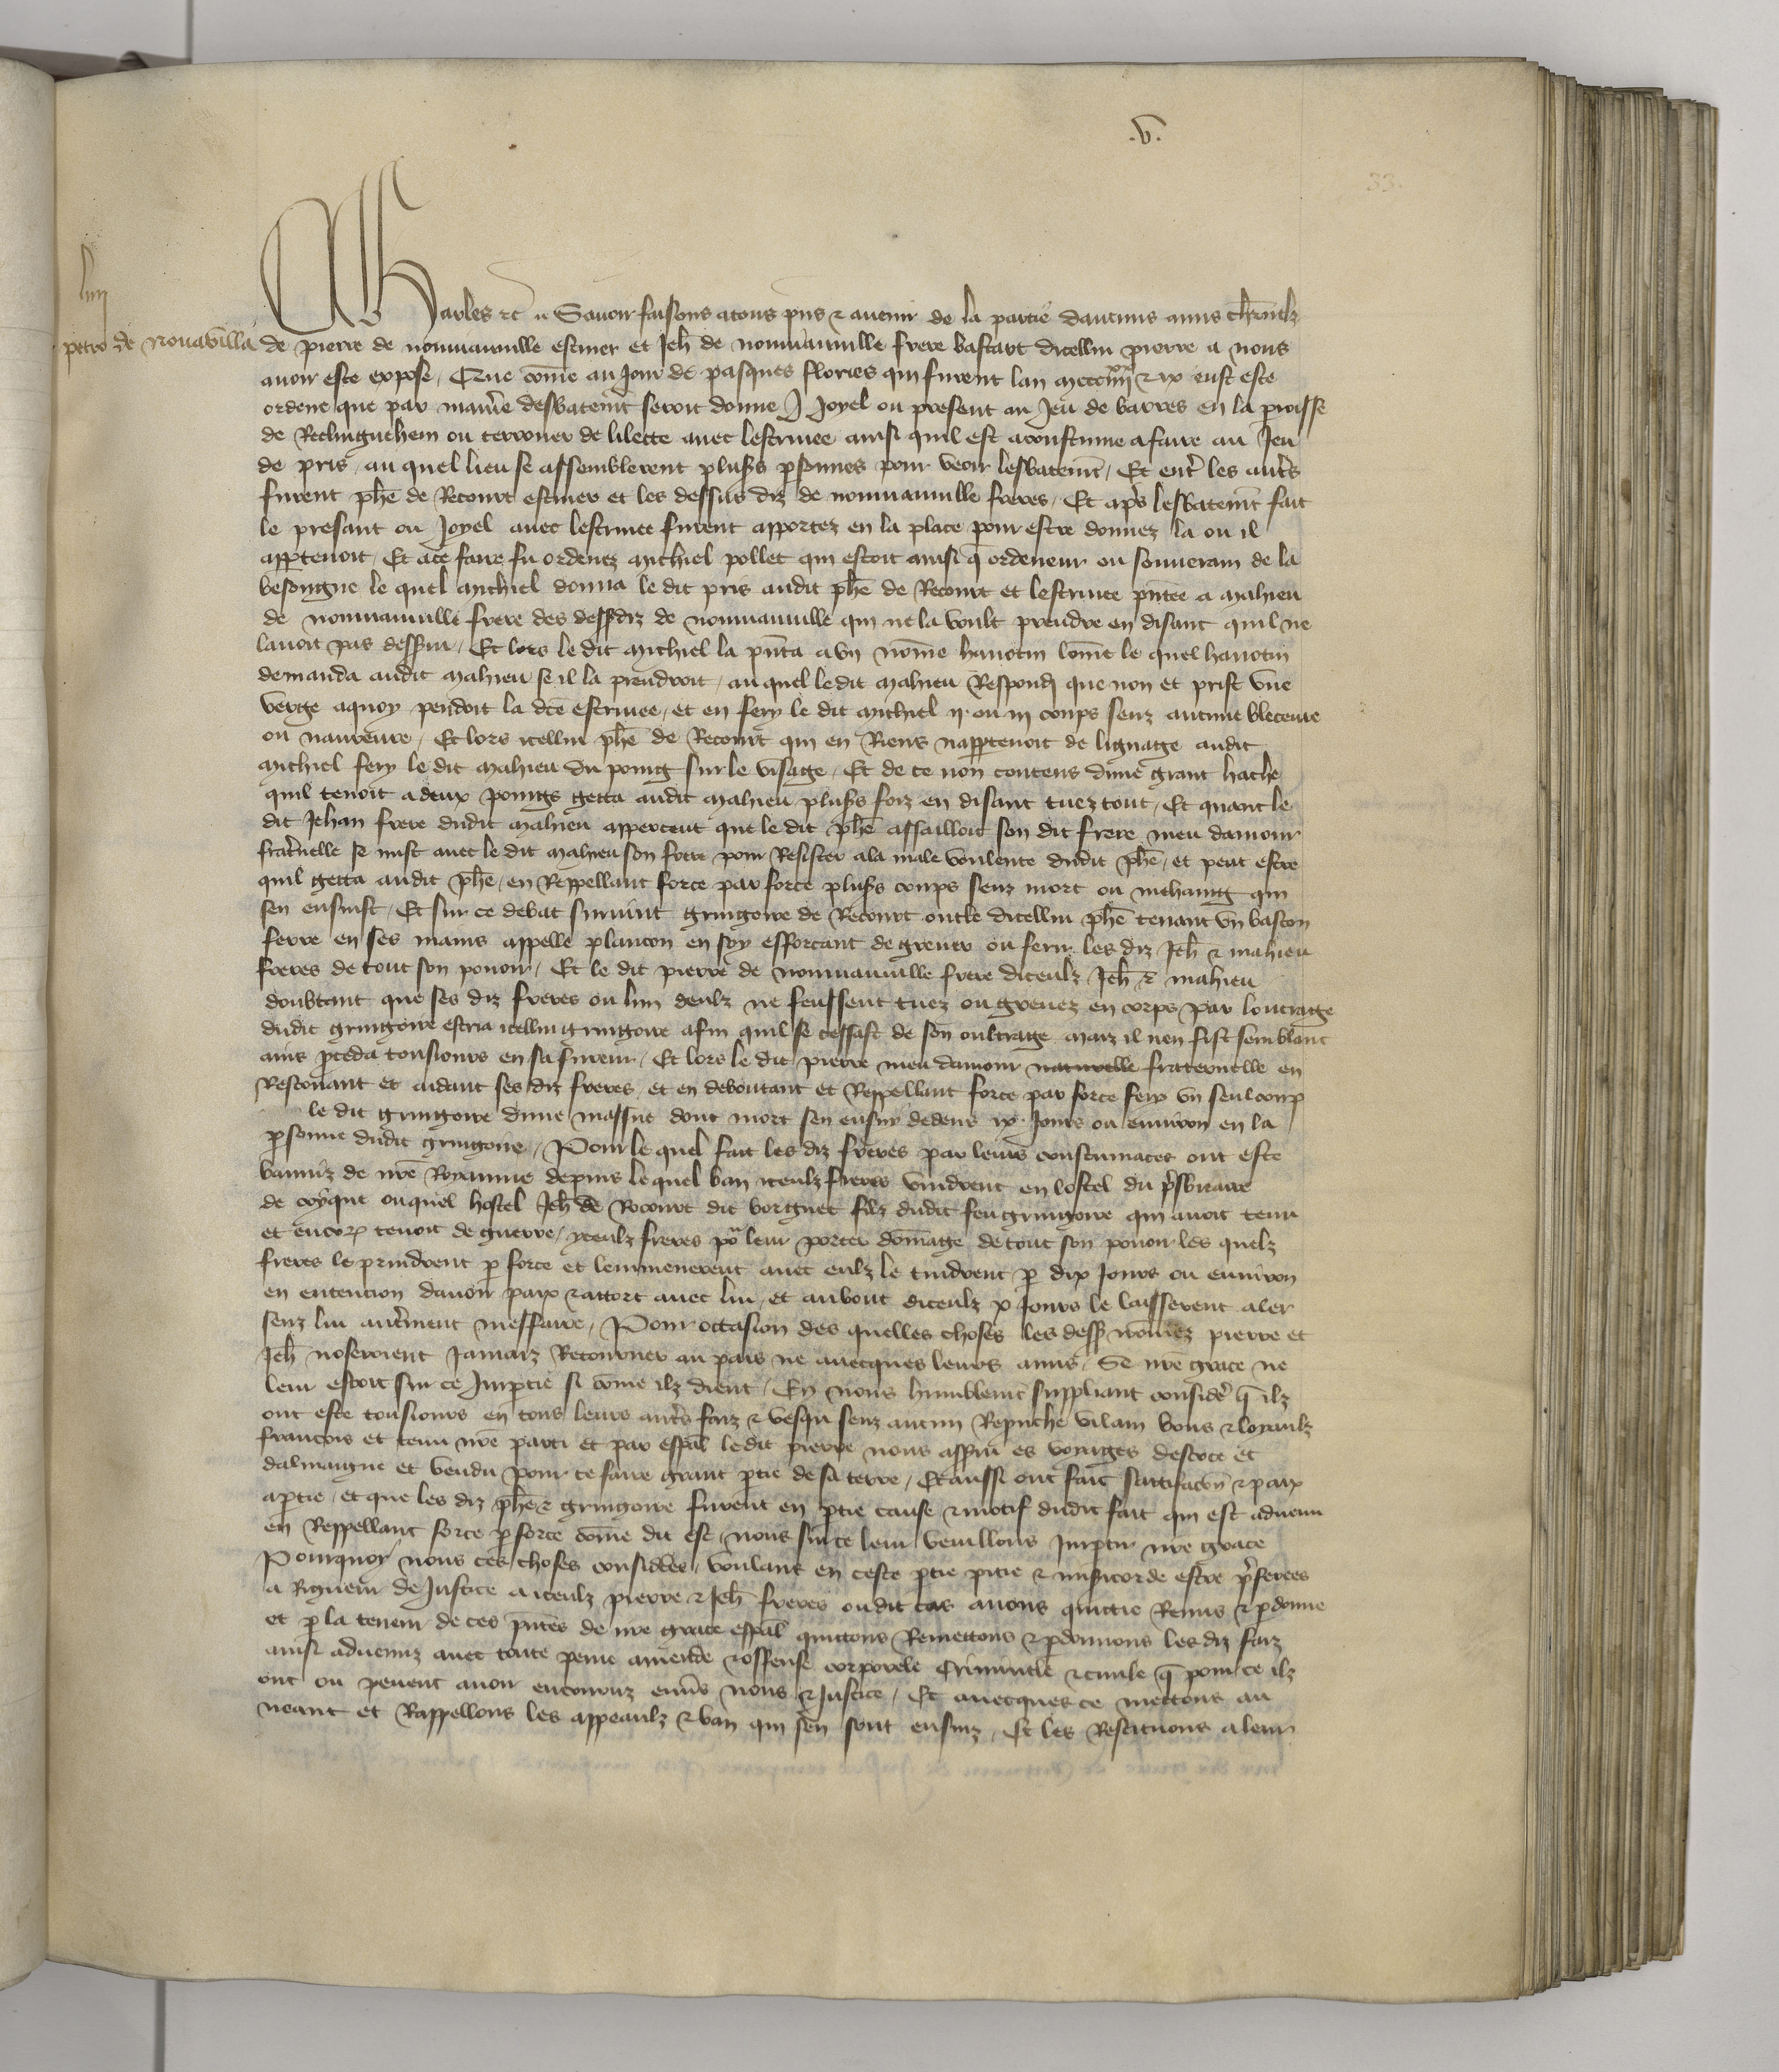 .v.
33.
liiii
petro de Novavilla
Charles etc. Savoir faisons a tous pns et avenir de la partie daucuns amis charnelz
de pierre de nouuauuille escuier et Jeh de nouuauuille frere bastart dicellui pierre a nous
avoir este expose, Que come au jour de pasques flories qui furent lan mccc iiiixx et ix eust este
ordene que par maniere desbatemt seroit donne j joyel ou present au jeu de barres en la proisse
de Reclinguehem ou terrouer de lilette avec lescriuee ainsi quil est acoustume a faire au jeu
de pris, au quel lieu se assemblerent pluss psonnes pour veoir lesbatemt, Et entre les autres
furent phe de Recourt escuier et les dessus diz de nouuauuille freres, Et apres lesbatemt fait
le presant ou joyel avec lescriuee furent apportez en la place pour estre donnez la ou il
appartenoit, Et a ce faire fu ordenez michiel pollet qui estoit ainsi q ordeneur ou souverain de la
besongne le quel michiel donna le dit pris audit phe de Recourt et lescriuee pntee a mahieu
de nouuauuille frere des dessdiz de nouuauuille qui ne la voult prendre en disant quil ne
lavoit pas desservi, Et lors le dit michiel la pnta a un nome hanotin lomt le quel hanotin
demanda audit mahieu se il la prendroit, au quel ledit mahieu Respondi que non et prist une
verge a quoy pendoit la dce escriuee, et en fery le dit michiel ij ou iij coups senz aucune bleceure
ou navreure, Et lors icellui phe de Recourt qui en Riens nappartenoit de lignaige audit
michiel fery le dit mahieu du poing sur le visage, Et de ce non contens dune grant hache
quil tenoit a deux poings getta audit mahieu pluss foiz en disant tuez tout, Et quant le
dit Jehan frere dudit mahieu apperceut que le dit phe assailloit son dit frere meu damour
fraternelle se mist avec le dit mahieu son frere pour Resister a la male voulente dudit phe, et peut estre
quil getta audit phe, en Reppellant force par force pluss coups senz mort ou mehaing qui
sen ensuist, Et sur ce debat survint gringoire de Recourt oncle dicellui phe tenant un baston
ferre en ses mains appelle plancon en soy efforcant de grever ou ferir les diz Jeh et mahieu
freres de tout son povoir, Et le dit pierre de nouuauuille frere diceulz Jeh et mahieu
doubtant que ses diz freres ou lun deulz ne feussent tuez ou grevez en corps par loutrage
dudit gringoire escria icellui gringoire afin quil se cessast de son oultrage maiz il nen fist semblant
ains pceda tousiours en sa fureur, Et lors le dit pierre meu damour naturelle fraternelle en
Rescouant et aidant ses diz freres et en deboutant et Reppellant force par force fery un seul coup
le dit gringoire dune massue dont mort sen ensuy dedens ix jours ou environ en la
psonne dudit gringoire, Pour le quel fait les diz freres par leurs contumaces ont este
banniz de nre Royaume depuis le quel ban iceulz freres vindrent en lostel du presbitaire
de coyque ouquel hostel Jeh de Recourt dit borgnet filz dudit feu gringoire qui avoit tenu
et encores tenoit de guerre, yceulz freres po leur porter domage de tout son povoir les quelz
freres le prindrent p force et lemmenerent avec eulz le tindrent p dix jours ou environ
en entencion davoir paix et accort avec lui, et au bout diceulz x jours le laisserent aler
senz lui autrement meffaire, Pour occasion des quelles choses les dess nomez pierre et
Jeh noseroient jamaiz Retourner au pais ne avecques leurs amis, Se nre grace ne
leur estoit sur ce Imptie si come ilz dient, En nous humblemt suppliant considere q ilz
ont este tousiours en tous leurs autres faiz et vesqu senz aucun Reprouche vilain bons et loyaulz
francois et tenu nre parti et par espal ledit pierre nous a servi es voyages descoce et
dalmaigne et vendu pour ce faire grant ptie de sa terre, Et aussi ont fait sattifacon et paix
a ptie, et que les diz phe et gringoire furent en ptie cause et motif dudit fait qui est advenu
en Reppellant force p force come dit est, nous sur ce leur veuillons Imptir nre grace
Pourquoy nous ces choses considerees, voulans en ceste ptie pitie et misericorde estre preferees
a Rigueur de Justice a iceulz pierre et Jeh freres oudit cas avons quictie Remis et pdonne
et p la teneur de ces pntes de nre grace espal quittons Remettons et pdonnons les diz faiz
ainsi advenuz avec toute peine amende et offense corporele Criminele et civile q pour ce ilz
ont ou pevent avoir encouruz envers nous et Justice, Et avecques ce mettons au
neant et Rappellons les appeaulz et ban qui sen sont ensuiz, Et les Restituons a leur